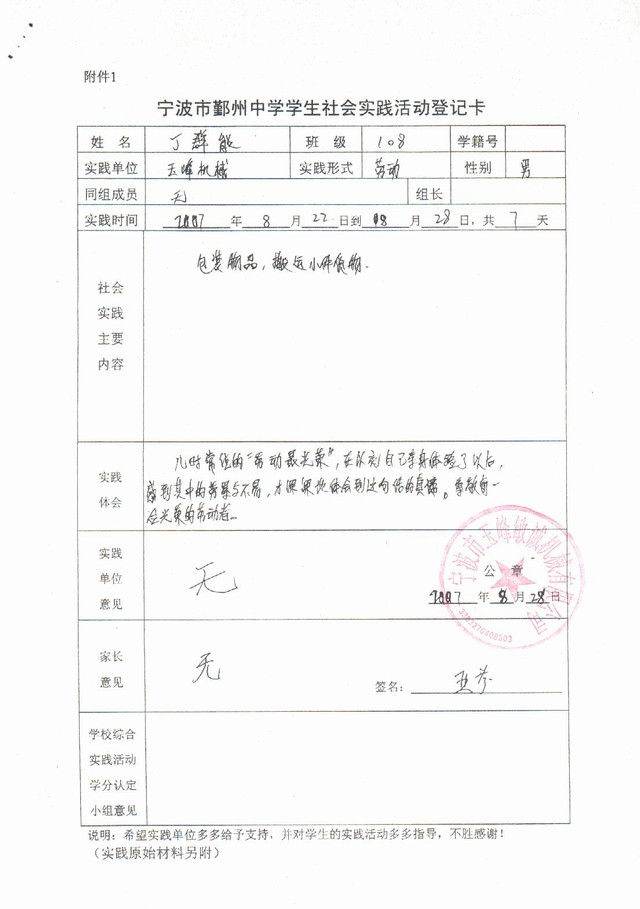 附件1
宁波市鄞州中学学生社会实践活动登记卡
姓 名 丁群能 班 级 108 学籍号
实践单位 玉峰机械 实践形式 劳动 性别 男
同组成员 无 组长
实践时间 2007 年 8 月 22 日到 08 月 28 日,共 7 天
社会实践主要内容 包装物品,搬运小件货物.
实践体会 儿时常信的“劳动最光荣”,在以亲自己亲身体验了以后,
感到其中的劳累与不易,才深深地体会到这句话的真谛。尊敬每一
位光荣的劳动者..
实践单位意见 无
公 章
2007 年 8 月 28 日
宁波市玉峰敏诚机械有限公司
家长意见 无
签名:
学校综合
实践活动
学分认定
小组意见
说明:希望实践单位多多给予支持,并对学生的实践活动多多指导,不胜感谢!
(实践原始材料另附)